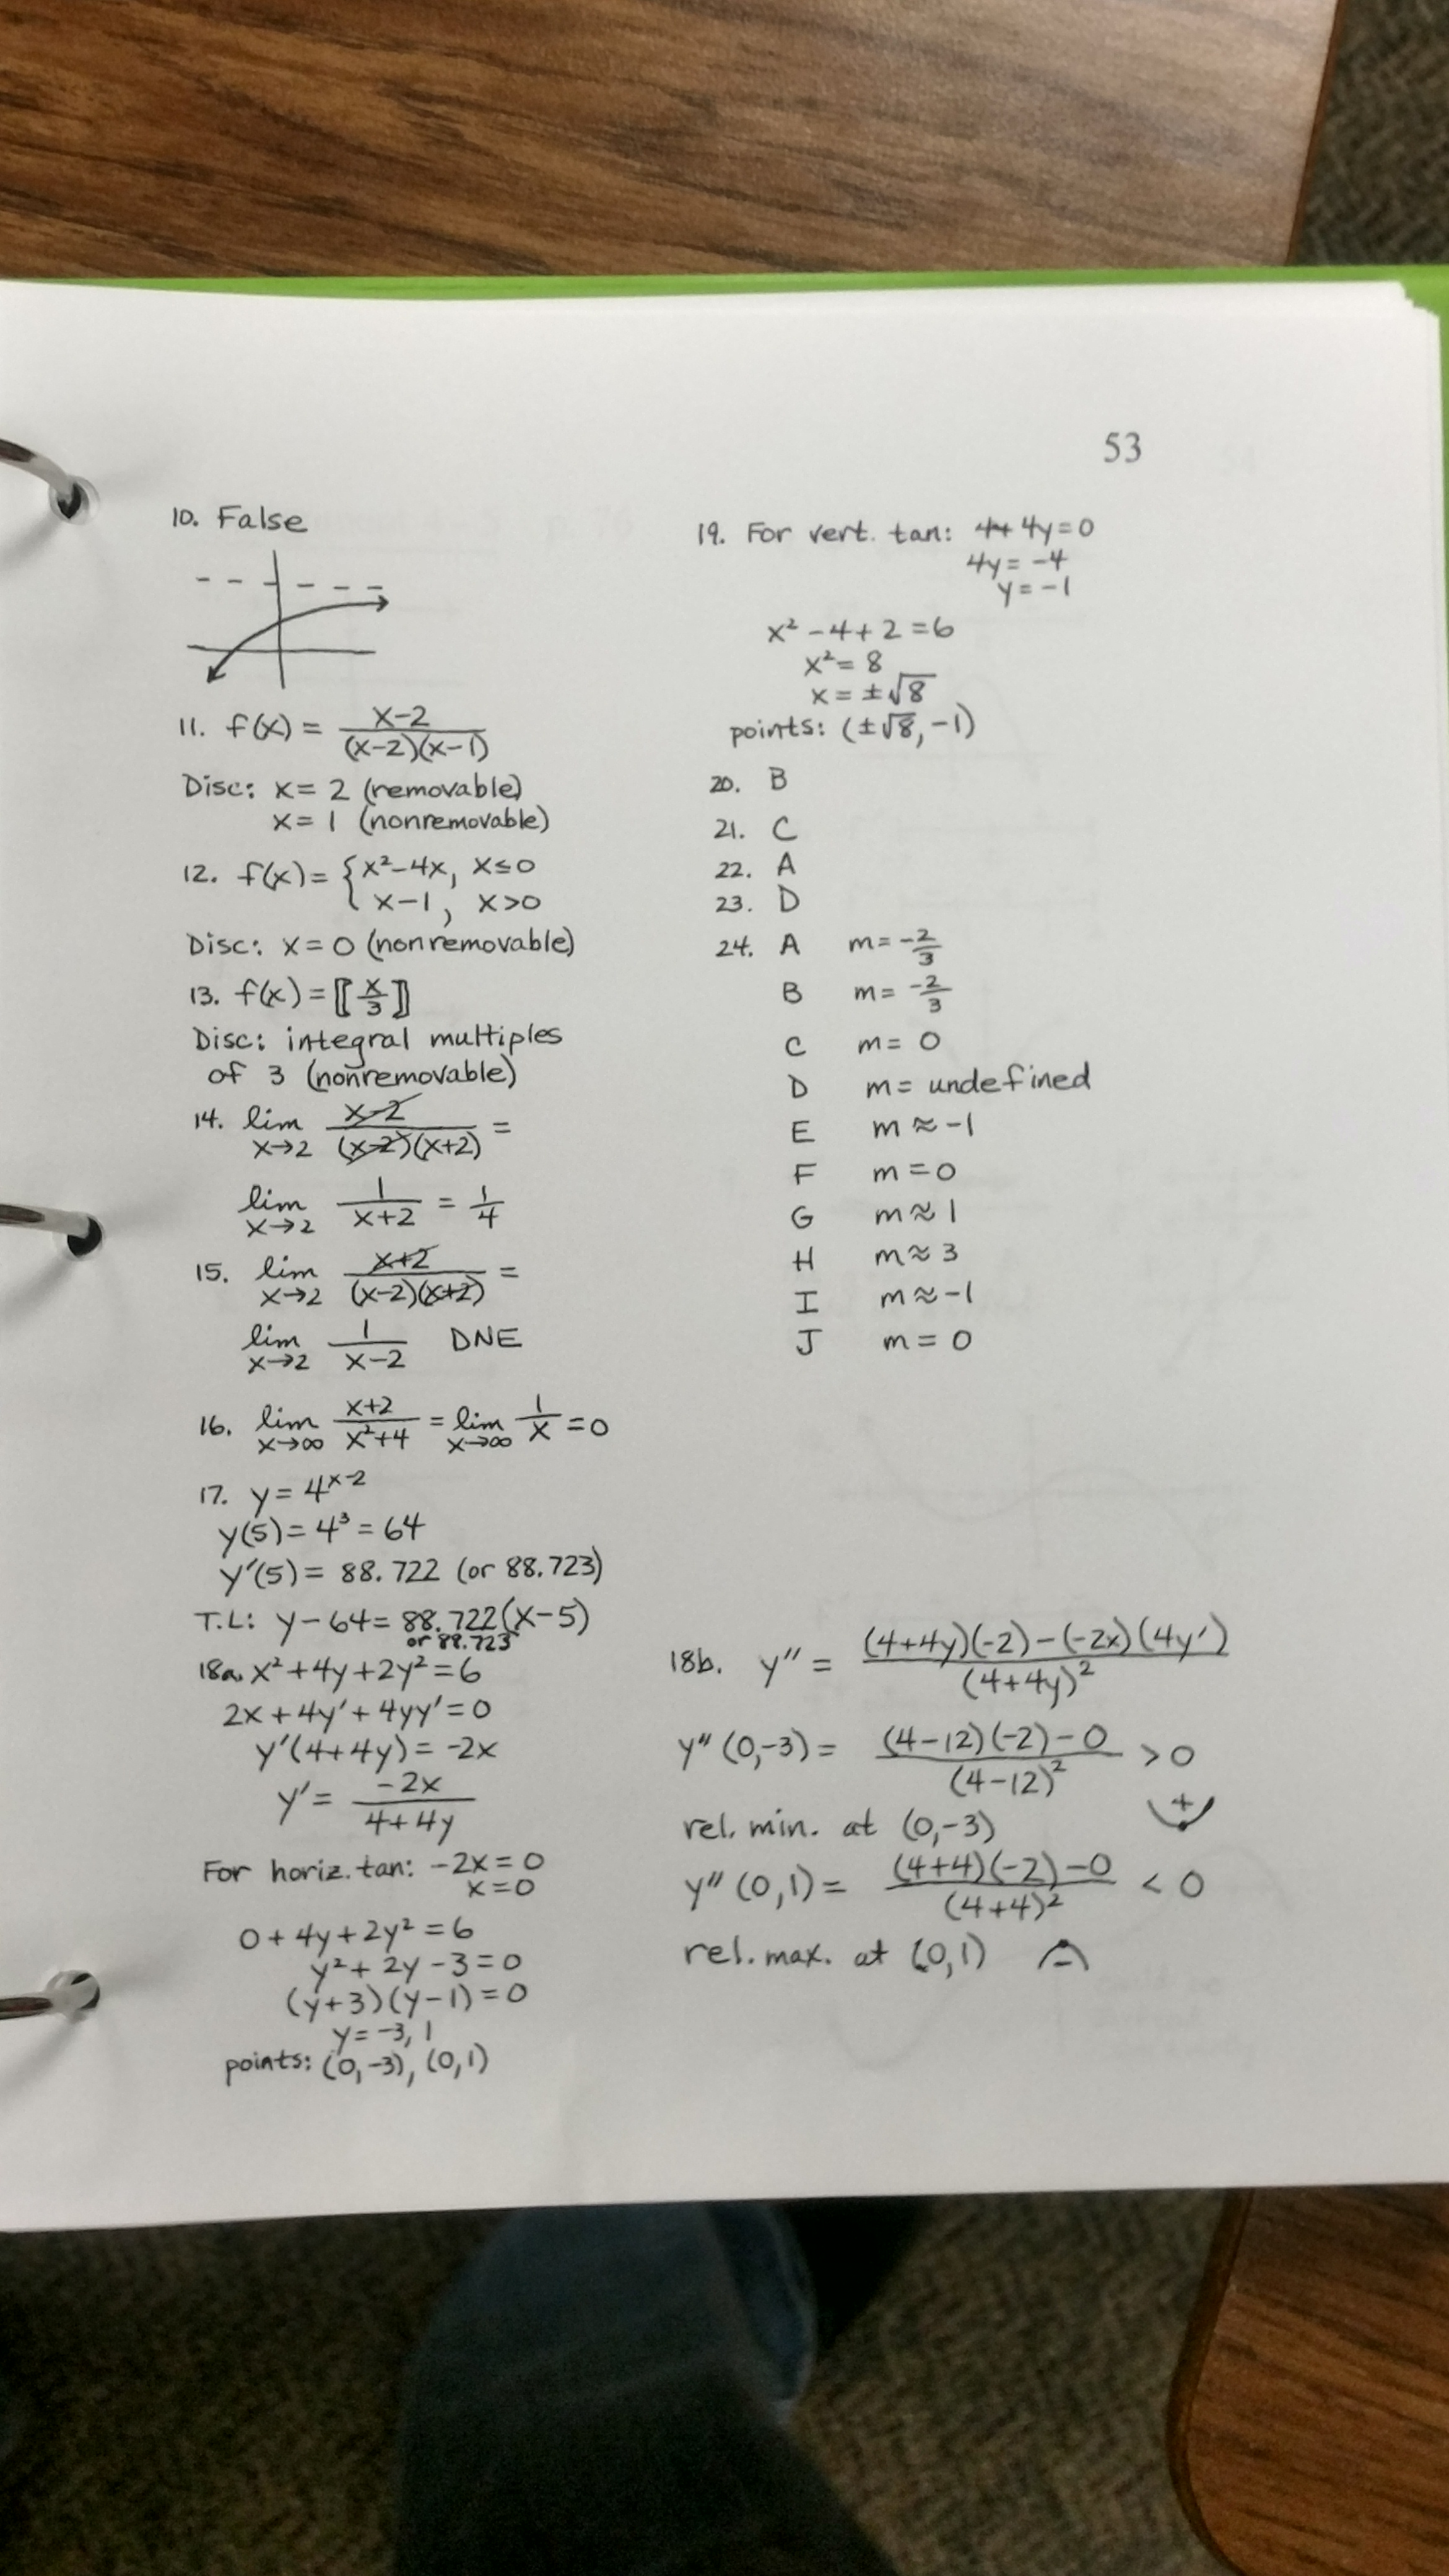 53
10. False
11. f(x) = (x-2)/((x-2)(x-1))
Disc: x = 2 (removable)
x = 1 (nonremovable)
12. f(x) = { x²-4x, x≤0
x-1, x>0
Disc: x = 0 (nonremovable)
13. f(x) = ⟦x/3⟧
Disc: integral multiples
of 3 (nonremovable)
14. lim x→2 (x-2)/((x-2)(x+2)) =
lim x→2 1/(x+2) = 1/4
15. lim x→2 (x+2)/((x-2)(x+2)) =
lim x→2 1/(x-2) DNE
16. lim x→∞ (x+2)/(x²+4) = lim x→∞ 1/x = 0
17. y = 4^(x-2)
y(5) = 4³ = 64
y'(5) = 88.722 (or 88.723)
T.L: y-64 = 88.722(x-5)
or 88.723
18a. x²+4y+2y² = 6
2x+4y'+4yy' = 0
y'(4+4y) = -2x
y' = -2x/(4+4y)
For horiz. tan: -2x = 0
x = 0
0+4y+2y² = 6
y²+2y-3 = 0
(y+3)(y-1) = 0
y = -3, 1
points: (0,-3), (0,1)
19. For vert. tan: 4+4y = 0
4y = -4
y = -1
x²-4+2 = 6
x² = 8
x = ±√8
points: (±√8, -1)
20. B
21. C
22. A
23. D
24. A m = -2/3
B m = -2/3
C m = 0
D m = undefined
E m ≈ -1
F m = 0
G m ≈ 1
H m ≈ 3
I m ≈ -1
J m = 0
18b. y'' = ((4+4y)(-2)-(-2x)(4y'))/(4+4y)²
y''(0,-3) = ((4-12)(-2)-0)/(4-12)² > 0
+
rel. min. at (0,-3)
y''(0,1) = ((4+4)(-2)-0)/(4+4)² < 0
rel. max. at (0,1) -